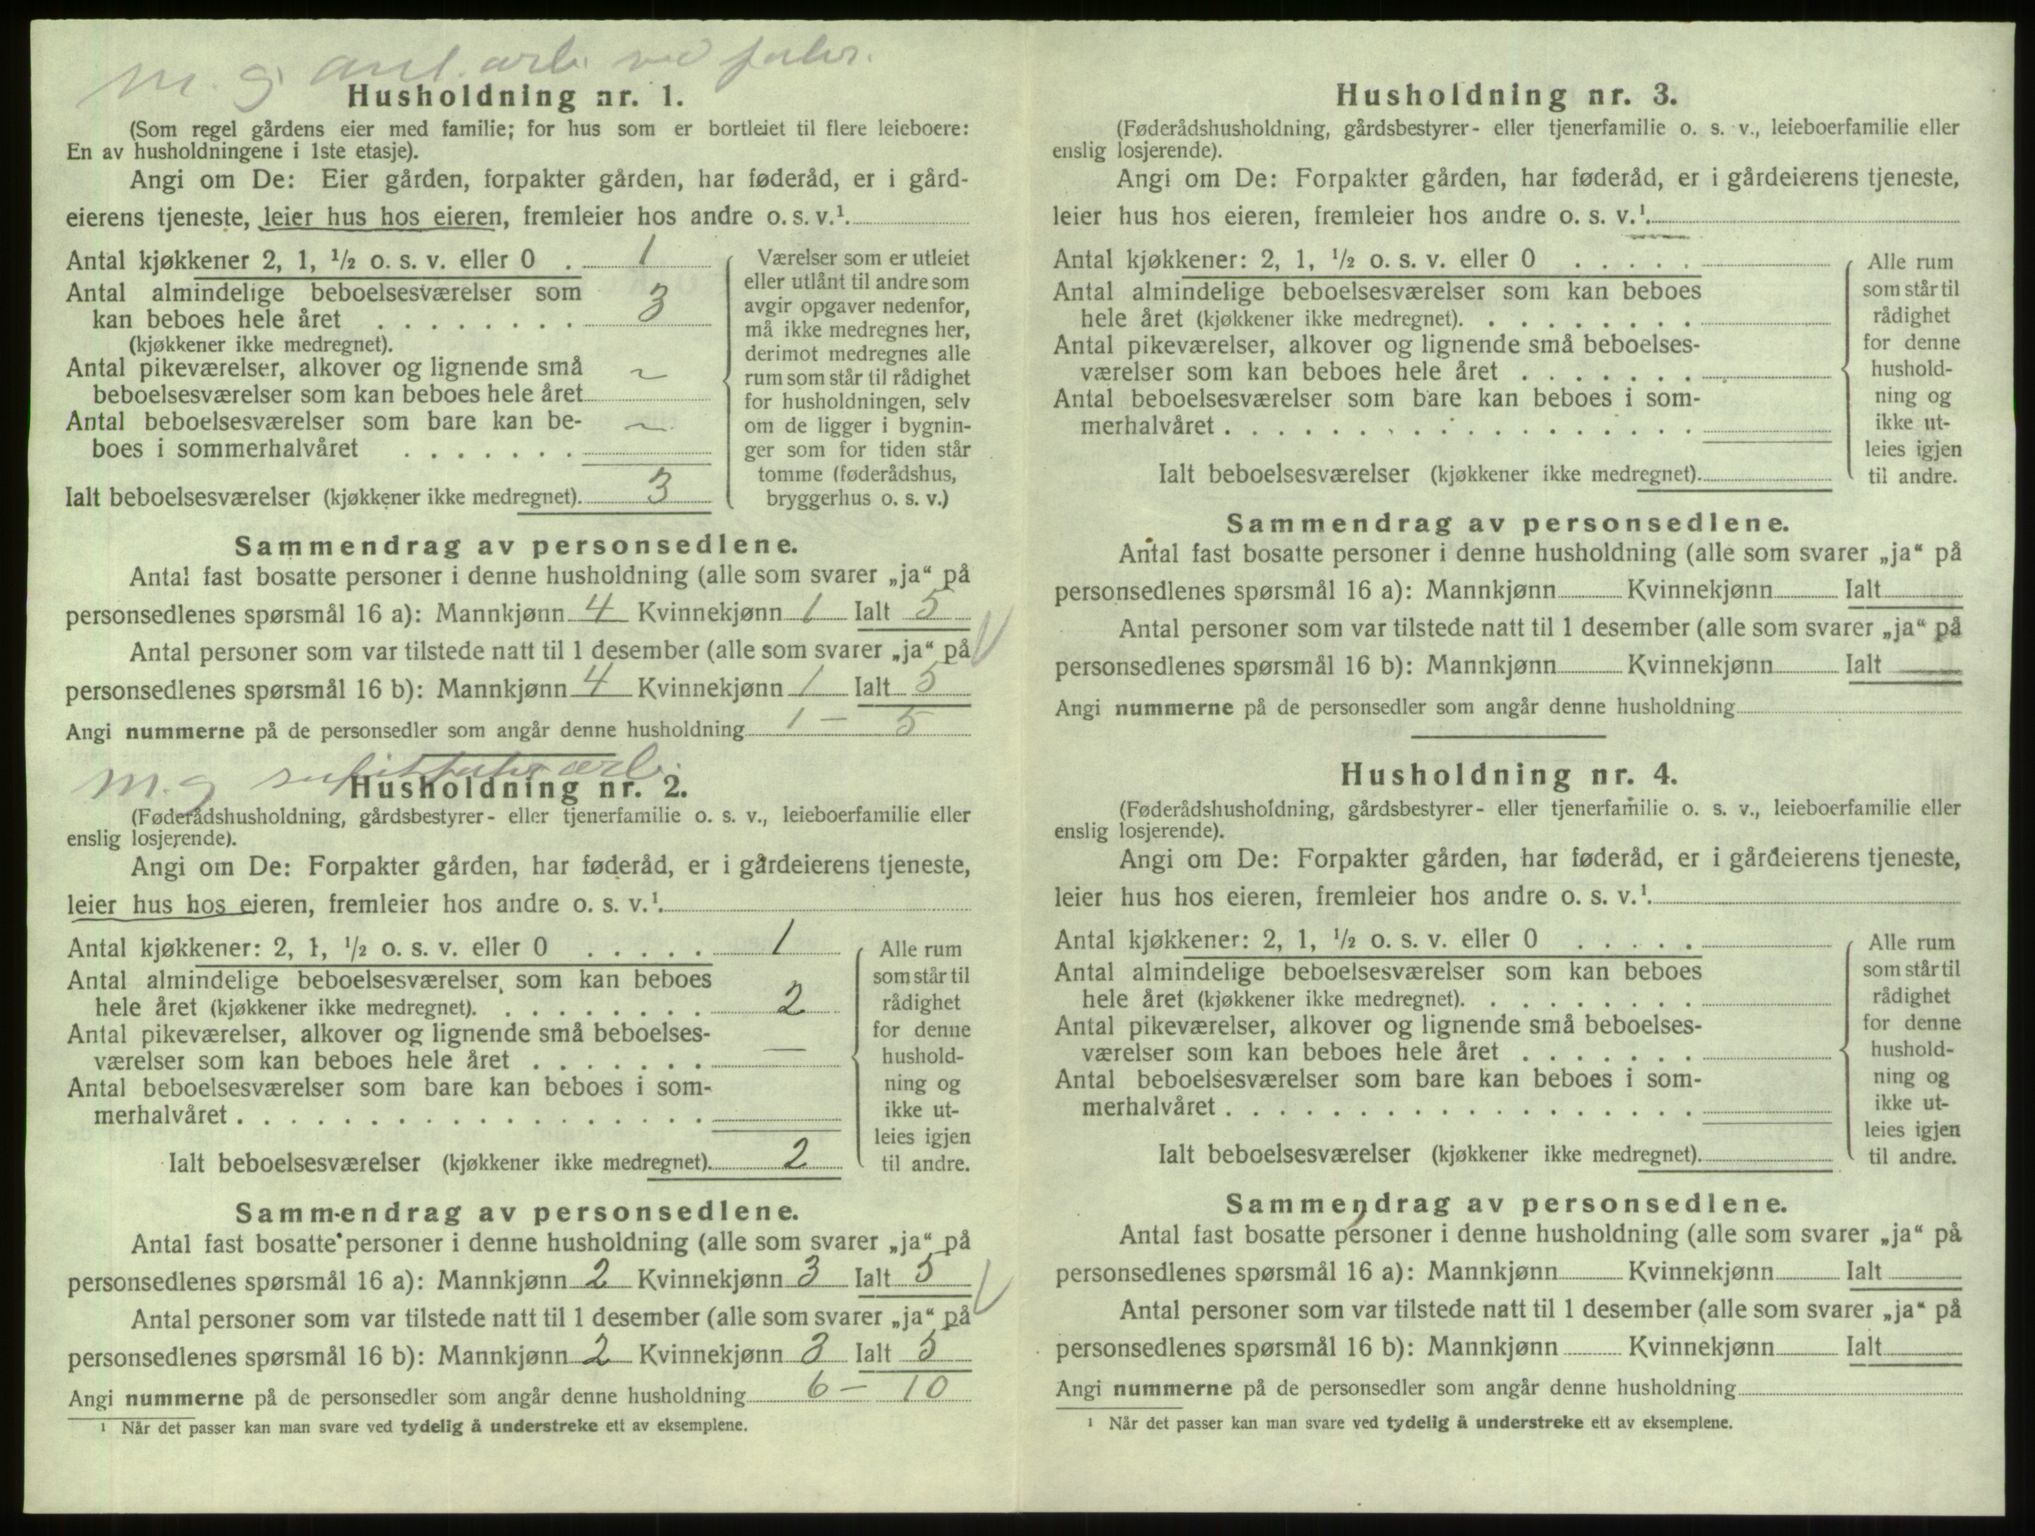 m. g. anl. arb. ved
Husholdning nr. 1.
(Som regel gårdens eier med familie; for hus som er bortleiet til flere leieboere:
En av husholdningene i 1ste etasje).
Angi om De: Eier gården, forpakter gården, har føderåd, er i gård-
eierens tjeneste, leier hus hos eieren, fremleier hos andre o. s. v.¹.
Antal kjøkkener 2, 1, ½ o. s. v. eller 0 . 1
Antal almindelige beboelsesværelser som
kan beboes hele året . . . . . . . . 3
(kjøkkener ikke medregnet).
Antal pikeværelser, alkover og lignende små
beboelsesværelser som kan beboes hele året ~
Antal beboelsesværelser som bare kan be-
boes i sommerhalvåret . . . . . . . ~
Ialt beboelsesværelser (kjøkkener ikke medregnet). 3
Værelser som er utleiet
eller utlånt til andre som
avgir opgaver nedenfor,
må ikke medregnes her,
derimot medregnes alle
rum som står til rådighet
for husholdningen, selv
om de ligger i bygnin-
ger som for tiden står
tomme (føderådshus,
bryggerhus o. s. v.)
Sammendrag av personsedlene.
Antal fast bosatte personer i denne husholdning (alle som svarer „ja“ på
personsedlenes spørsmål 16 a): Mannkjønn 4 Kvinnekjønn 1 Ialt 5
Antal personer som var tilstede natt til 1 desember (alle som svarer „ja“ på
personsedlenes spørsmål 16 b): Mannkjønn 4 Kvinnekjønn 1 Ialt 5
Angi nummerne på de personsedler som angår denne husholdning 1 – 5
m. g arb.
Husholdning nr. 2.
(Føderådshusholdning, gårdsbestyrer- eller tjenerfamilie o. s. v., leieboerfamilie eller
enslig losjerende).
Angi om De: Forpakter gården, har føderåd, er i gårdeierens tjeneste,
leier hus hos eieren, fremleier hos andre o. s. v.¹.
Antal kjøkkener: 2, 1, ½ o. s. v. eller 0 . . . . . 1
Antal almindelige beboelsesværelser som kan beboes
hele året (kjøkkener ikke medregnet). . . . . . . . . 2
Antal pikeværelser, alkover og lignende små beboelses-
værelser som kan beboes hele året . . . . . . . —
Antal beboelsesværelser som bare kan beboes i som-
merhalvåret . . . . . . . . . . . . . . . . . .
Ialt beboelsesværelser (kjøkkener ikke medregnet). 2
Alle rum
som står til
rådighet
for denne
hushold-
ning og
ikke ut-
leies igjen
til andre.
Sammendrag av personsedlene.
Antal fast bosatte personer i denne husholdning (alle som svarer „ja“ på
personsedlenes spørsmål 16 a): Mannkjønn 2 Kvinnekjønn 3 Ialt 5
Antal personer som var tilstede natt til 1 desember (alle som svarer „ja“ på
personsedlenes spørsmål 16 b): Mannkjønn 2 Kvinnekjønn 3 Ialt 5
Angi nummerne på de personsedler som angår denne husholdning 6 – 10
¹ Når det passer kan man svare ved tydelig å understreke ett av eksemplene.
Husholdning nr. 3.
(Føderådshusholdning, gårdsbestyrer- eller tjenerfamilie o. s. v., leieboerfamilie eller
enslig losjerende).
Angi om De: Forpakter gården, har føderåd, er i gårdeierens tjeneste,
leier hus hos eieren, fremleier hos andre o. s. v.¹.
Antal kjøkkener: 2, 1, ½ o. s. v. eller 0 . . . . .
Antal almindelige beboelsesværelser som kan beboes
hele året (kjøkkener ikke medregnet). . . . . . . . .
Antal pikeværelser, alkover og lignende små beboelses-
værelser som kan beboes hele året . . . . . . .
Antal beboelsesværelser som bare kan beboes i som-
merhalvåret . . . . . . . . . . . . . . . . . .
Ialt beboelsesværelser (kjøkkener ikke medregnet).
Alle rum
som står til
rådighet
for denne
hushold-
ning og
ikke ut-
leies igjen
til andre.
Sammendrag av personsedlene.
Antal fast bosatte personer i denne husholdning (alle som svarer „ja“ på
personsedlenes spørsmål 16 a): Mannkjønn Kvinnekjønn Ialt
Antal personer som var tilstede natt til 1 desember (alle som svarer „ja“ på
personsedlenes spørsmål 16 b): Mannkjønn Kvinnekjønn Ialt
Angi nummerne på de personsedler som angår denne husholdning
Husholdning nr. 4.
(Føderådshusholdning, gårdsbestyrer- eller tjenerfamilie o. s. v., leieboerfamilie eller
enslig losjerende).
Angi om De: Forpakter gården, har føderåd, er i gårdeierens tjeneste,
leier hus hos eieren, fremleier hos andre o. s. v.¹.
Antal kjøkkener: 2, 1, ½ o. s. v. eller 0 . . . . .
Antal almindelige beboelsesværelser som kan beboes
hele året (kjøkkener ikke medregnet). . . . . . . . .
Antal pikeværelser, alkover og lignende små beboelses-
værelser som kan beboes hele året . . . . . . .
Antal beboelsesværelser som bare kan beboes i som-
merhalvåret . . . . . . . . . . . . . . . . . .
Ialt beboelsesværelser (kjøkkener ikke medregnet).
Alle rum
som står til
rådighet
for denne
hushold-
ning og
ikke ut-
leies igjen
til andre.
Sammendrag av personsedlene.
Antal fast bosatte personer i denne husholdning (alle som svarer „ja“ på
personsedlenes spørsmål 16 a): Mannkjønn Kvinnekjønn Ialt
Antal personer som var tilstede natt til 1 desember (alle som svarer „ja“ på
personsedlenes spørsmål 16 b): Mannkjønn Kvinnekjønn Ialt
Angi nummerne på de personsedler som angår denne husholdning
¹ Når det passer kan man svare ved tydelig å understreke ett av eksemplene.